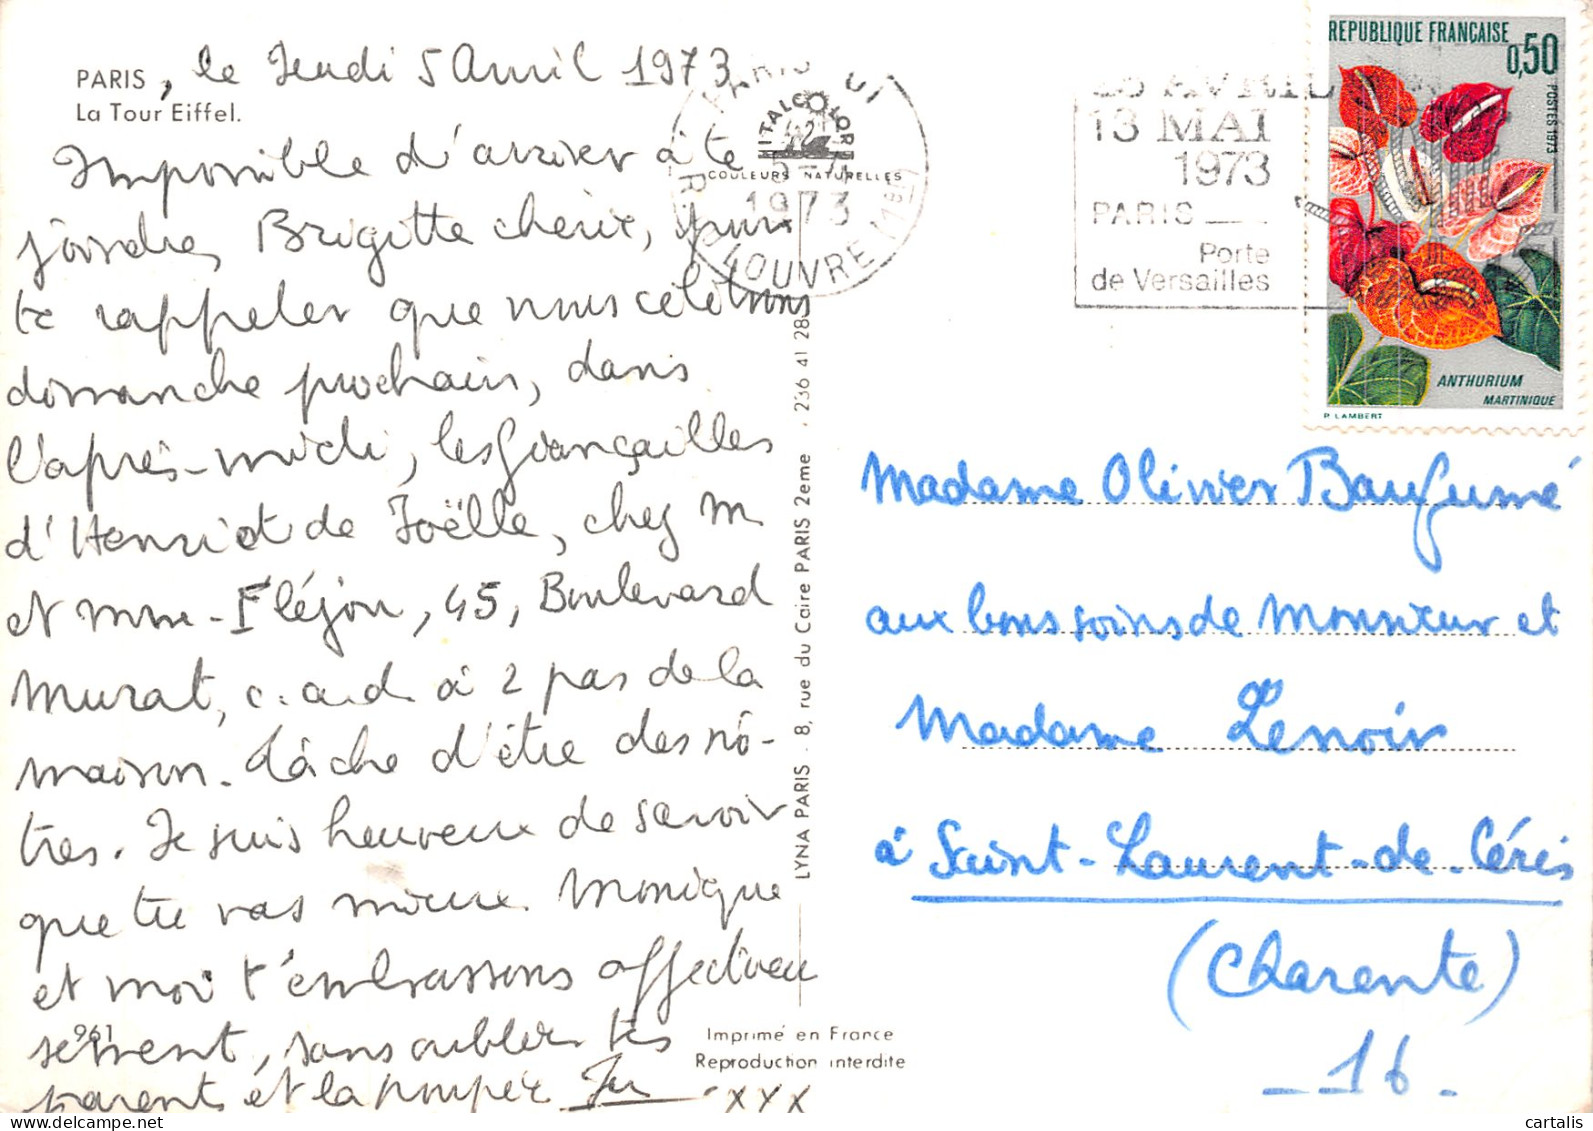 PARIS, le Jeudi 5 Avril 1973
La Tour Eiffel.
Impossible d'arriver à te
joindre, Brigitte chérie, pour
te rappeler que nous célébrons
dimanche prochain, dans
l'après-midi, les fiançailles
d'Henri et de Joëlle, chez M
et Mme Fléjou, 45, Boulevard
Murat, c.a.d. à 2 pas de la
maison. Tâche d'être des nô-
tres. Je suis heureuse de savoir
que tu vas mieux. Monique
et moi t'embrassons affectueu
sement, sans oublier tes
parents et la poupée.
XXX
961
ITALCOLOR
42
COULEURS NATURELLES
1973
LOUVRE
13 MAI
1973
PARIS
Porte
de Versailles
REPUBLIQUE FRANÇAISE
0,50
POSTES 1973
ANTHURIUM
MARTINIQUE
P. LAMBERT
LYNA PARIS . 8, rue du Caire PARIS 2eme . 236 41 28
Imprimé en France
Reproduction interdite
Madame Olivier Baufumé
aux bons soins de Monsieur et
Madame Lenoir
à Saint-Laurent-de-Céris
(Charente)
-16-
cartalis
Delcampe.net